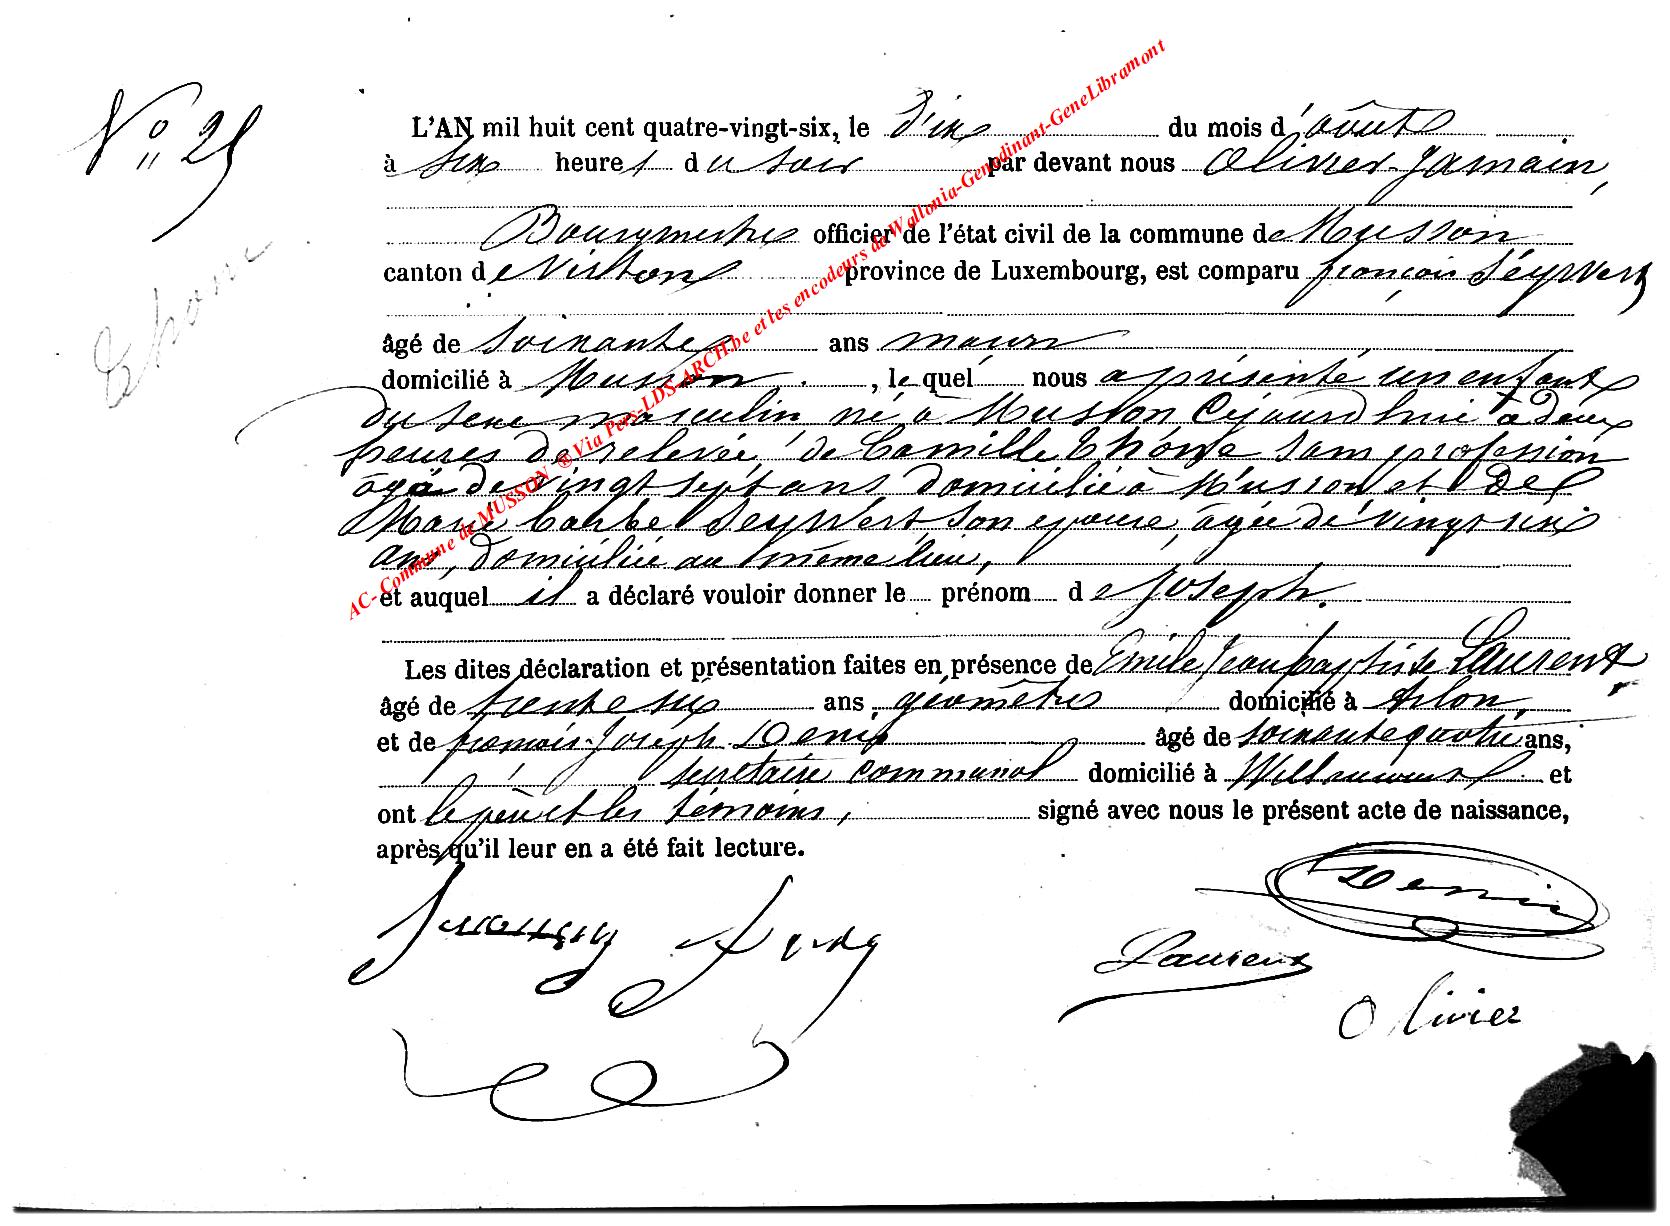 N° 25
Thome
L'AN mil huit cent quatre-vingt-six, le dix du mois d'août
à six heures du soir par devant nous Olivier Jamain,
Bourgmestre officier de l'état civil de la commune de Musson
canton de Virton province de Luxembourg, est comparu françois Seywert
âgé de soixante ans maçon
domicilié à Musson, lequel nous a présenté un enfant
du sexe masculin né à Musson Cejourd'hui à deux
heures de relevée, de Camille Thome sans profession
âgé de vingt sept ans, domicilié à Musson et de
Marie Barbe Seywert son épouse, âgée de vingt six
ans, domiciliée au même lieu,
et auquel il a déclaré vouloir donner le prénom de Joseph.
Les dites déclaration et présentation faites en présence de Emile Jean baptiste Laurent
âgé de trente six ans, géomètre domicilié à Arlon,
et de françois Joseph Denis âgé de soixante quatre ans,
secrétaire communal domicilié à Willancourt et
ont le père et les témoins, signé avec nous le présent acte de naissance,
après qu'il leur en a été fait lecture.
Denis
Laurent
Olivier
AC- Commune de MUSSON ® Via Pers-LDS-ARCH.be et les encodeurs de Wallonia-Genedinant-GeneLibramont